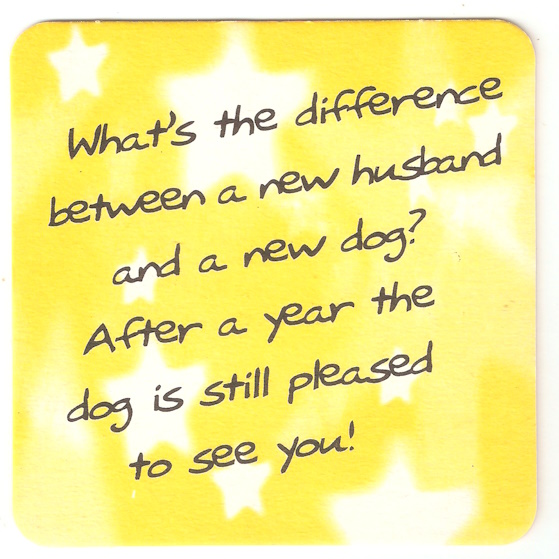 What's the difference
between a new husband
and a new dog?
After a year the
dog is still pleased
to see you!